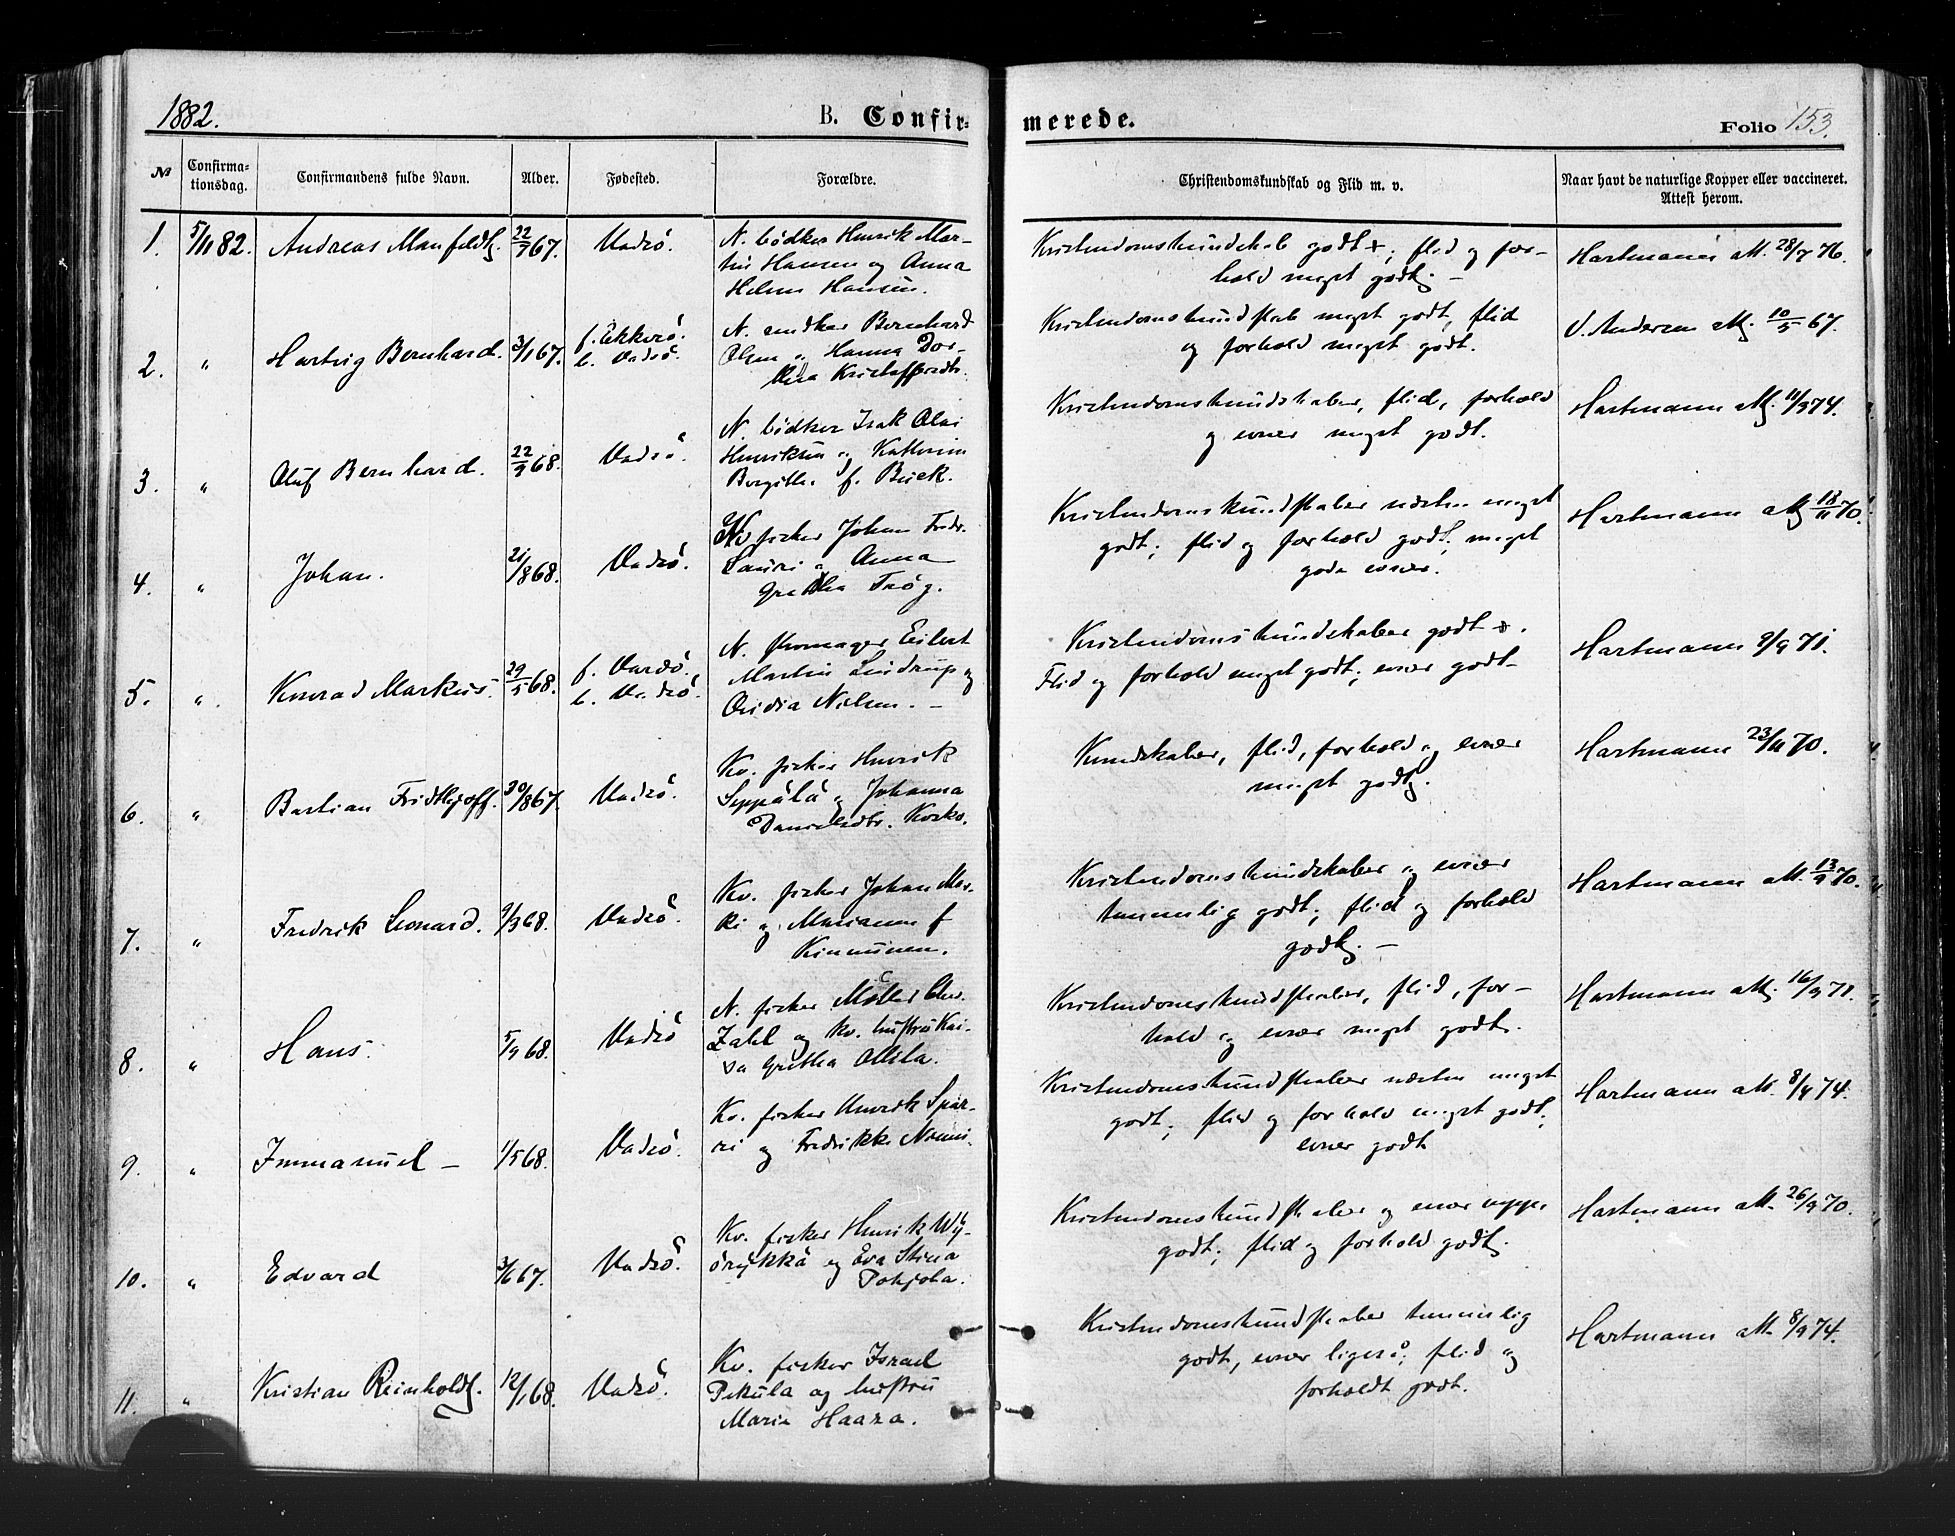 1882.
B. Confir-
merede.
Folio 153.
№
Confirma-
tionsdag.
Confirmandens fulde Navn.
Alder.
Fødested.
Forældre.
Christendomskundskab og Flid m. v.
Naar havt de naturlige Kopper eller vaccineret.
Attest herom.
1. 5/11 82. Andreas 22/7 67. Vadsö.
N. bödker Henrik Mar-
tin Hansen og Anna
Helene Hansen.
Kristendomskundskab godt +; flid og for-
hold meget godt. –
Hartmann att. 28/7 76.
2. " Hartvig Bernhard. 3/1 67. f. Ekkerö.
b. Vadsö.
N. Bernhard
Olsen og Hanna Dor-
thea Kristoffersdtr.
Kristendomskundskab meget godt, flid
og forhold meget godt.
Andersen att. 10/5 67.
3. " Oluf Bernhard. 22/3 68. Vadsö.
N. bödker Isak Olai
Henriksen og Kathrine
Bergithe f. Buck.
Kristendomskundskaber, flid, forhold
og evner meget godt.
Hartmann att. 11/9 74.
4. " Johan. 21/8 68. Vadsö.
Kv fisker Johan Fredr.
Lauri og Anna
Gretha
Kristendomskundskaber næsten meget
godt; flid og forhold godt, meget
gode evner.
Hartmann att. 18/11 70.
5. " Konrad Markus. 29/5 68. f. Vardö.
b. Vadsö.
N. skomager Eilert
Martin Lindrup og
Ovidia Nilsen. –
Kristendomskundskaber godt +.
Flid og forhold meget godt; evner godt
Hartmann 9/9 71.
6. " Bastian Fridthjoff. 30/8 67. Vadsö.
Kv. fisker Henrik
Seppälä og Johanna
Danielsdtr. Kosko.
Kundskaber, flid, forhold og evner
meget godt.
Hartmann 23/11 70.
7. " Fredrik Leonard. 9/3 68. Vadsö.
Kv. fisker Johan Mar-
ki og Marianne f
Kinnunen.
Kristendomskundskaber og evner
temmelig godt; flid og forhold
godt. –
Hartmann att. 13/9 70.
8. " Hans. 5/9 68. Vadsö
N. fisker Möller Chr.
Zahl og kv. hustru Kai-
sa Gretha Alela.
Kristendomskundskaber, flid, for-
hold og evner meget godt.
Hartmann att. 16/9 71.
9. " Immanuel – 1/5 68. Vadsö.
Kv. fisker Henrik Spar-
ri og Fredrikke Niemi.
Kristendomskundskaber næsten meget
godt; flid og forhold meget godt;
evner godt
Hartmann att. 8/9 74.
10. " Edvard 3/6 67. Vadsö.
Kv. fisker Henrik Wy-
örykkä og Eva Stina
Pohjola.
Kristendomskundskaber og evner neppe
godt; flid og forhold godt.
Hartmann att. 26/9 70.
11. " Kristian Reinholdt. 12/1 68. Vadsö.
Kv. fisker Israel
Pekula og hustru
Maria Haara.
Kristendomskundskaber temmelig
godt, evner ligeså; flid og
forholdt godt.
Hartmann att. 8/9 74.